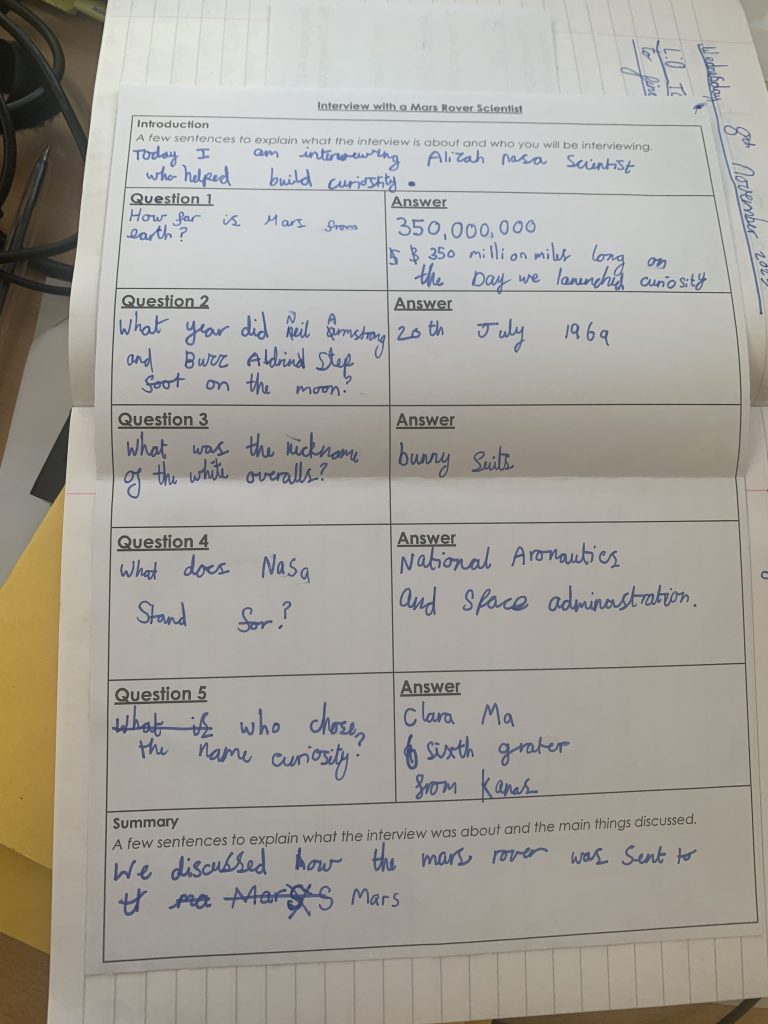 Wednesday 8th November 2023
L.O I
to fine
Interview with a Mars Rover Scientist
Introduction
A few sentences to explain what the interview is about and who you will be interviewing.
Today I am interviewing Alizah nasa Scientist
who helped build curiostity.
Question 1
How far is Mars from
earth?
Answer
350,000,000
350 million miles long on
the Day we launched curiosity
Question 2
What year did Neil Armstrong
and Buzz Aldrind Step
foot on the moon?
Answer
20th July 1969
Question 3
What was the nickname
of the white overalls?
Answer
bunny Suits
Question 4
What does Nasa
Stand for?
Answer
National Aronautics
and Space adminastration.
Question 5
What is who chose
the name curiosity?
Answer
Clara Ma
6 sixth grater
from Kanas
Summary
A few sentences to explain what the interview was about and the main things discussed.
We discussed how the mars rover was Sent to
tt ma Mars S Mars